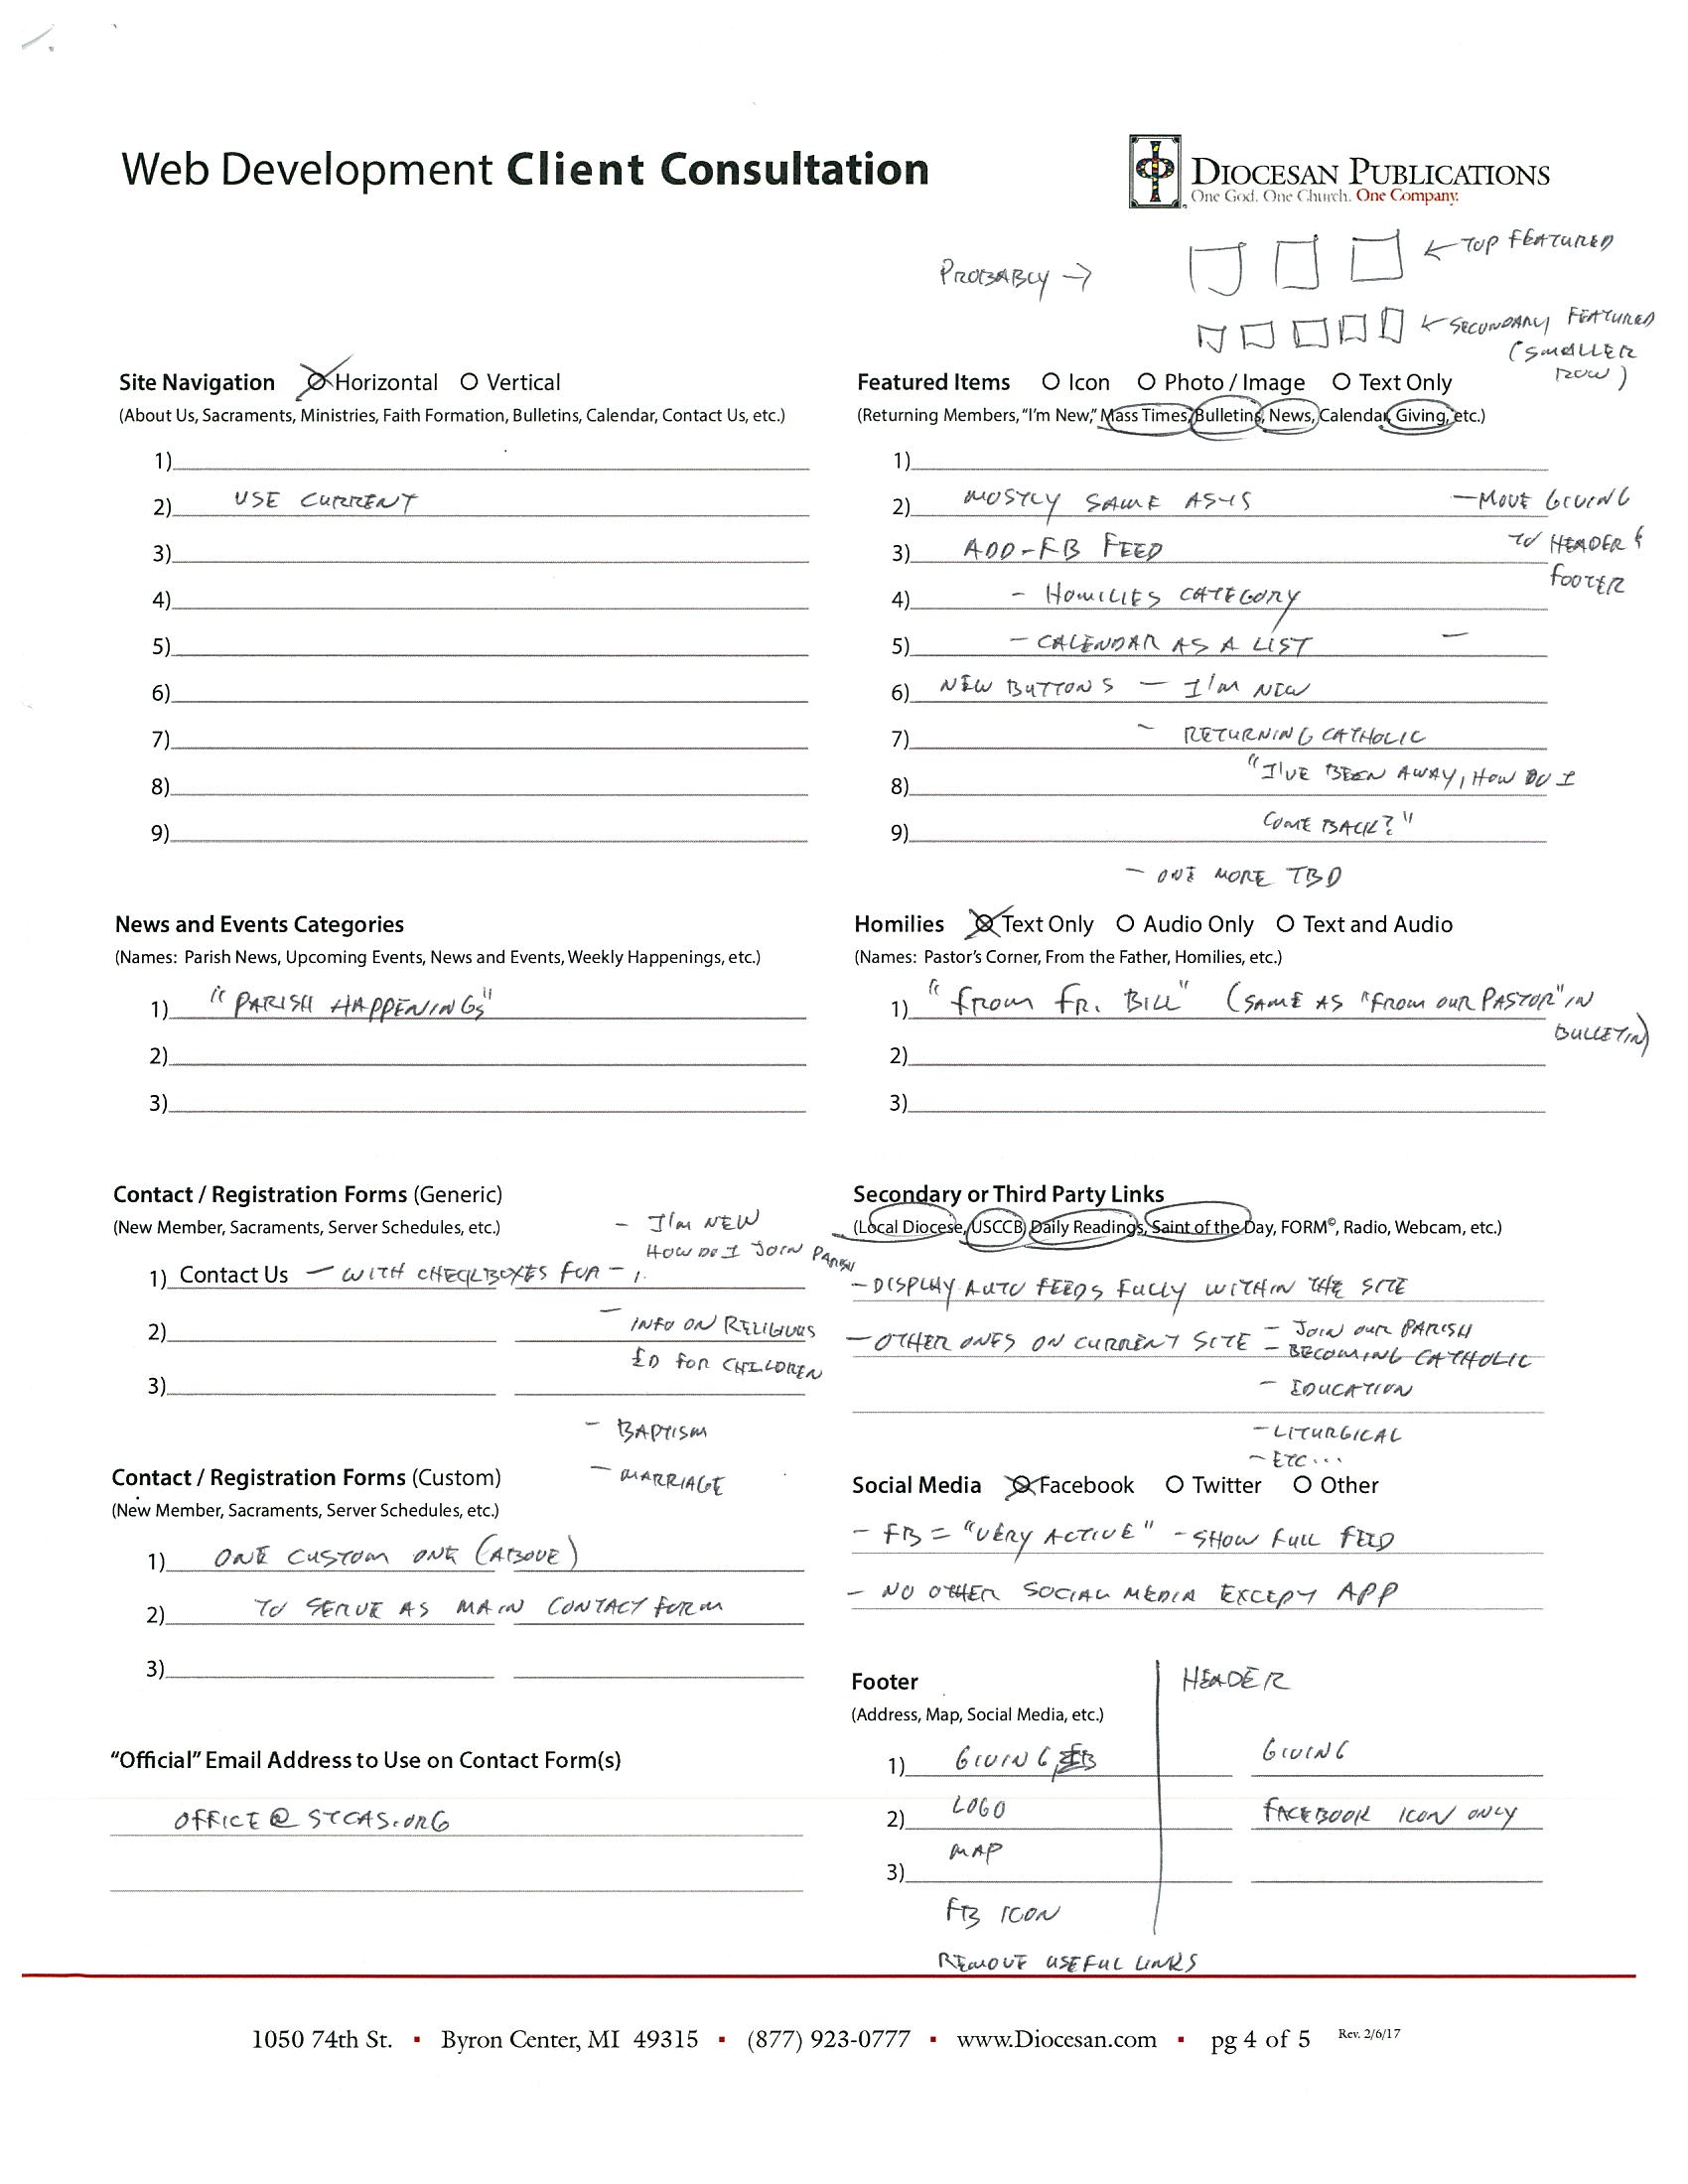 Web Development Client Consultation
DIOCESAN PUBLICATIONS
One God. One Church. One Company.
PROBABLY →
← TOP FEATURED
← SECONDARY FEATURED
(SMALLER
ROW)
Site Navigation Horizontal Vertical
(About Us, Sacraments, Ministries, Faith Formation, Bulletins, Calendar, Contact Us, etc.)
1)
2) USE CURRENT
3)
4)
5)
6)
7)
8)
9)
Featured Items Icon Photo / Image Text Only
(Returning Members, “I’m New,” Mass Times, Bulletins, News, Calendar, Giving, etc.)
1)
2) MOSTLY SAME AS-IS
- MOVE GIVING
TO HEADER &
FOOTER
3) ADD - FB FEED
4) - HOMILIES CATEGORY
5) - CALENDAR AS A LIST -
6) NEW BUTTONS - I'M NEW
7) - RETURNING CATHOLIC
8) "I'VE BEEN AWAY, HOW DO I
9) COME BACK?"
- ONE MORE TBD
News and Events Categories
(Names: Parish News, Upcoming Events, News and Events, Weekly Happenings, etc.)
1) "PARISH HAPPENINGS"
2)
3)
Homilies Text Only Audio Only Text and Audio
(Names: Pastor’s Corner, From the Father, Homilies, etc.)
1) "From FR. BILL" (SAME AS "FROM OUR PASTOR" IN
BULLETIN)
2)
3)
Contact / Registration Forms (Generic)
(New Member, Sacraments, Server Schedules, etc.)
- I'M NEW
HOW DO I JOIN PARISH
1) Contact Us - WITH CHECKBOXES FOR -
2) - INFO ON RELIGIOUS
ED FOR CHILDREN
3)
- BAPTISM
- MARRIAGE
Secondary or Third Party Links
(Local Diocese, USCCB, Daily Readings, Saint of the Day, FORM©, Radio, Webcam, etc.)
- DISPLAY AUTO FEEDS FULLY WITHIN THE SITE
- OTHER ONES ON CURRENT SITE - JOIN OUR PARISH
- BECOMING CATHOLIC
- EDUCATION
- LITURGICAL
- ETC...
Contact / Registration Forms (Custom)
(New Member, Sacraments, Server Schedules, etc.)
1) ONE CUSTOM ONE (ABOVE)
2) TO SERVE AS MAIN CONTACT FORM
3)
Social Media Facebook Twitter Other
- FB = "VERY ACTIVE" - SHOW FULL FEED
- NO OTHER SOCIAL MEDIA EXCEPT APP
“Official” Email Address to Use on Contact Form(s)
OFFICE@STCAS.ORG
Footer
(Address, Map, Social Media, etc.)
1) GIVING
2) LOGO
3) MAP
FB ICON
REMOVE USEFUL LINKS
HEADER
GIVING
FACEBOOK ICON ONLY
1050 74th St. ▪ Byron Center, MI 49315 ▪ (877) 923-0777 ▪ www.Diocesan.com ▪ pg 4 of 5 Rev. 2/6/17